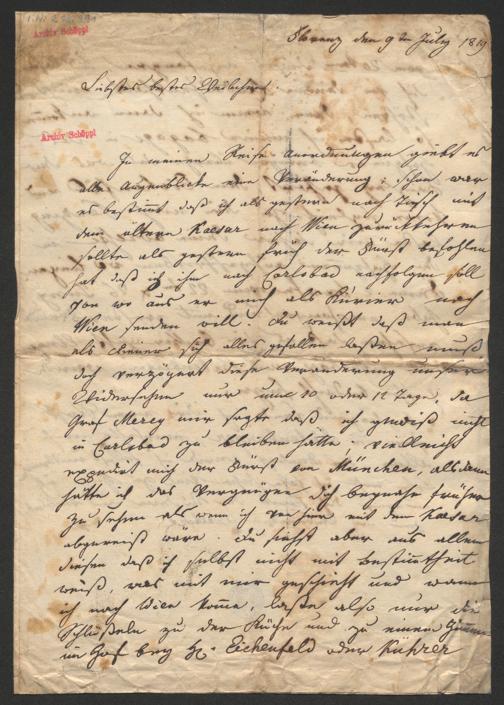 Archiv Schöppl
Florenz den 9ten July 1819
Liebstes bestes Weibchen.
Archiv Schöppl
In meinen Reise Anordnungen giebt es
alle Augenblicke eine Veränderung; schon war
es bestimmt daß ich als gestern nach Tisch mit
dem ältern Kaesar nach Wien zurückkehren
sollte als gestern früh der Fürst befohlen
hat daß ich ihm nach Carlsbad nachfolgen soll
von wo aus er mich als Kurier nach
Wien senden will. Du weißt daß man
als Diener sich alles gefallen lassen muß
doch verzögert diese Veränderung unser
Widersehen nur um 10 oder 12 Tage, da
Graf Mercy mir sagte daß ich gewiß nicht
in Carlsbad zu bleiben hätte. Vielleicht
expedirt mich der Fürst von München, alsdann
hätte ich das Vergnügen dich beynahe früher
zu sehen als wenn ich von hier mit dem Kaesar
abgereist wäre. Du siehst aber aus allem
diesen daß ich selbst nicht mit Bestimtheit
weiß, was mit mir geschieht und wann
ich nach Wien komme, lasse also nur die
Schlüsseln zu der Küche und zu einem Zimmer
im Hof bey H. Eichenfeld oder Kührer